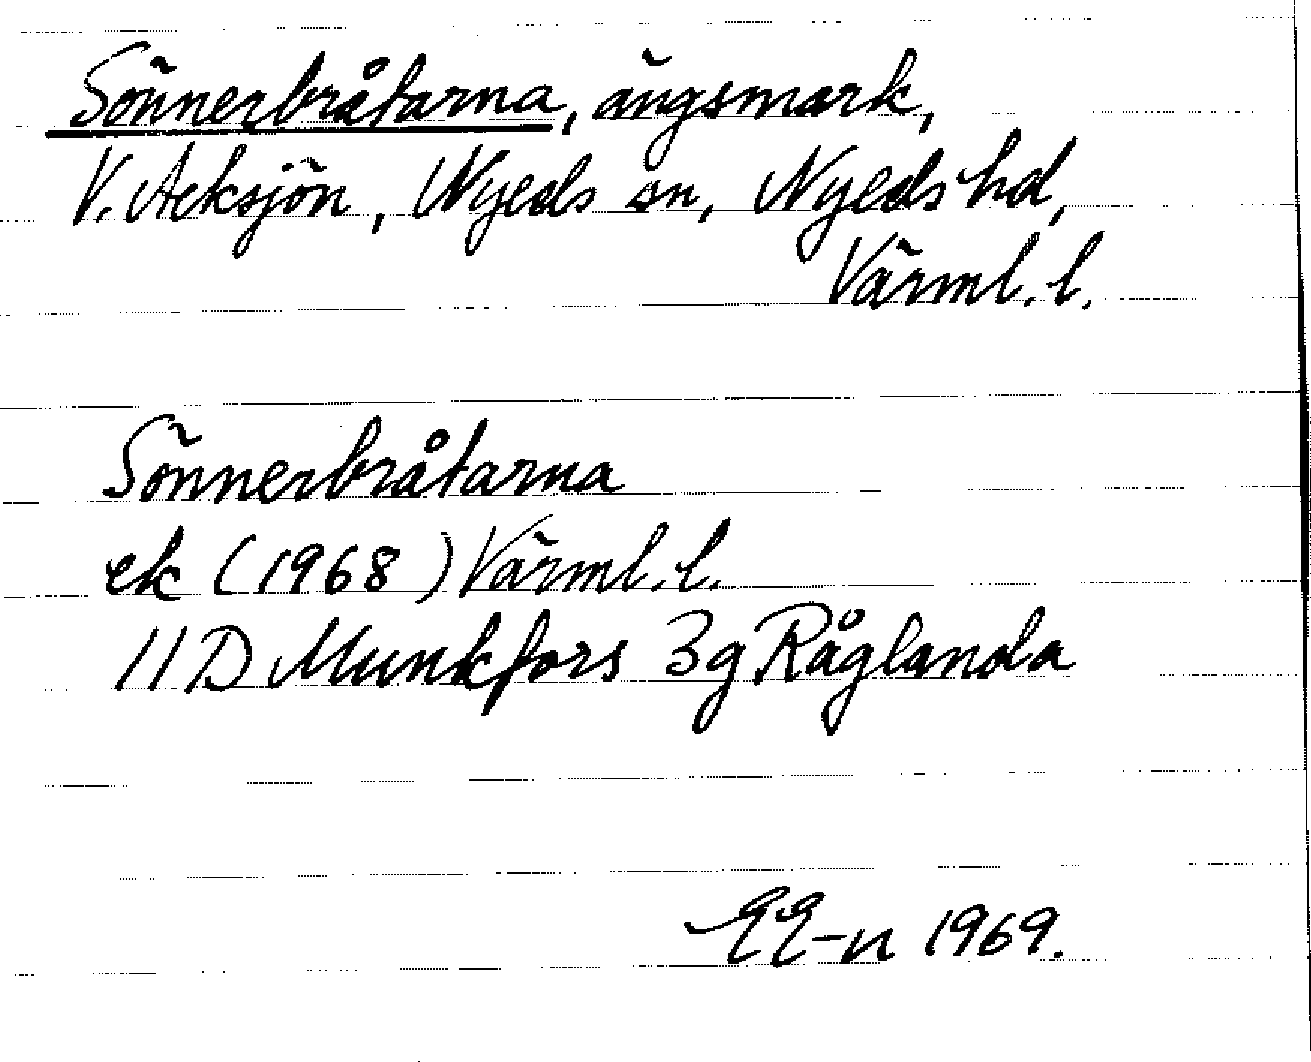 Sönnerbråtarna, ängsmark,
V. Acksjön, Nyeds sn, Nyeds hd,
Värml. l.
Sönnerbråtarna
ek (1968) Värml. l.
11D Munkfors 3g Råglanda
EE-n 1969.